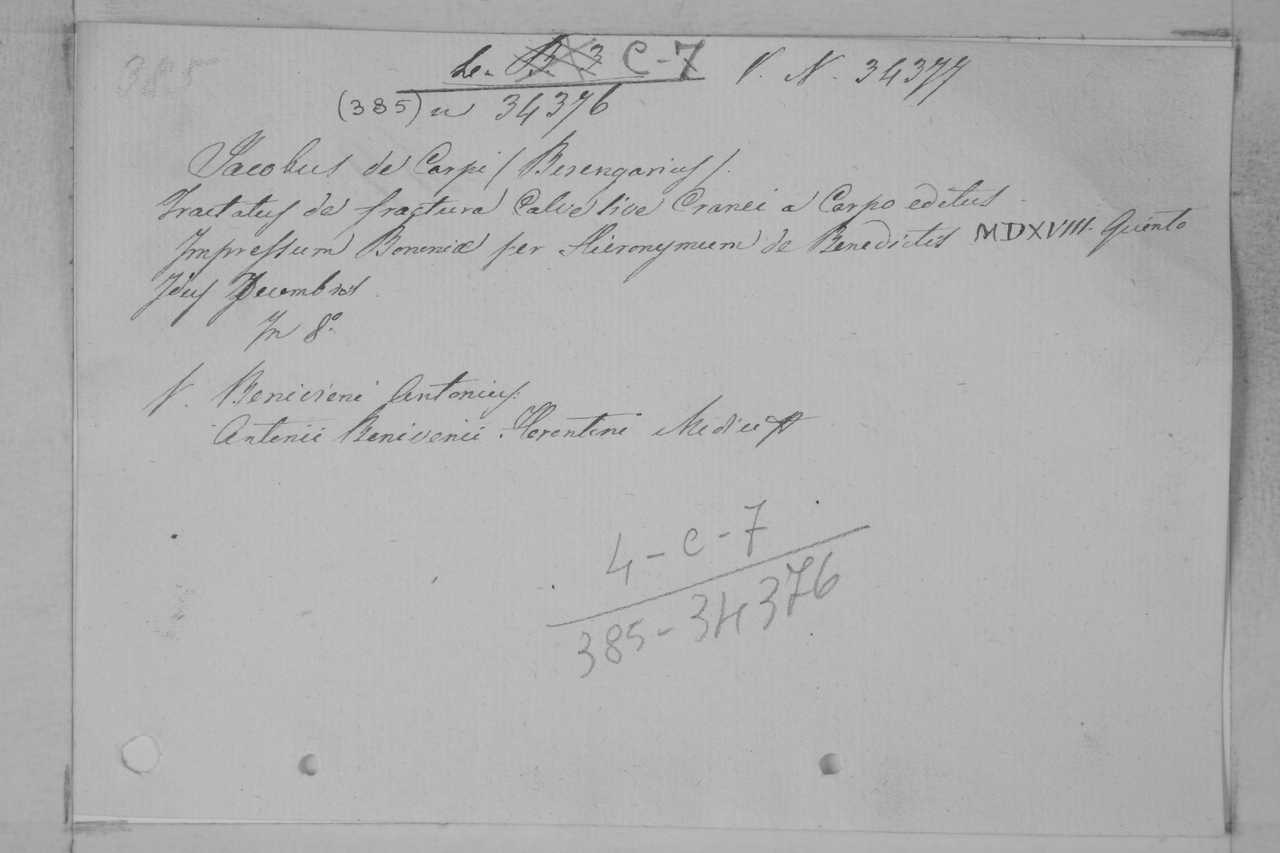 385
C-7 V. N. 34377
(385) n 34376
Jacobus de Carpi (Berengarius).
Tractatus de fractura Calve sive Cranei a Carpo editus
Impressum Bononiæ per Hieronymum de Benedictis MDXVIII. Quinto
Idus Decembres
In 8.º
V. Benivieni Antonius.
Antonii Benivenii Florentini Medici
4-C-7
385-34376